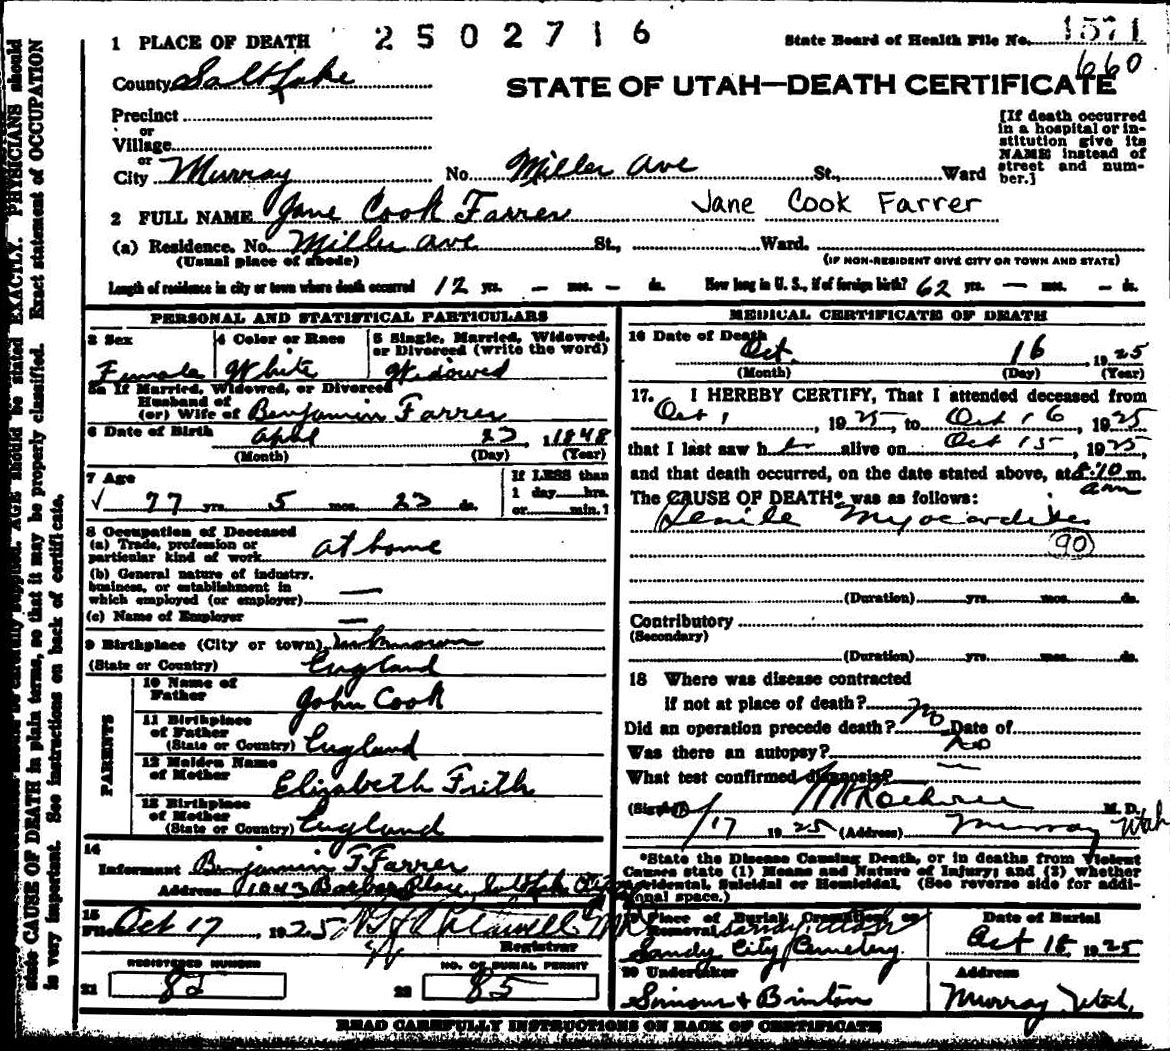 1 PLACE OF DEATH 2502716 State Board of Health File No. 1571
660
County Salt Lake STATE OF UTAH—DEATH CERTIFICATE
Precinct
or
Village
or
City Murray No. Miller Ave St., Ward
[If death occurred
in a hospital or in-
stitution give its
NAME instead of
street and num-
ber.]
2 FULL NAME Jane Cook Farrer Jane Cook Farrer
(a) Residence. No. Miller Ave St., Ward.
(Usual place of abode) (IF NON-RESIDENT GIVE CITY OR TOWN AND STATE)
Length of residence in city or town where death occurred 12 yrs. — mos. — ds. How long in U. S., if of foreign birth? 62 yrs. — mos. — ds.
PERSONAL AND STATISTICAL PARTICULARS
3 Sex
Female
4 Color or Race
White
5 Single, Married, Widowed,
or Divorced (write the word)
Widowed
5a If Married, Widowed, or Divorced
Husband of
(or) Wife of Benjamin Farrer
6 Date of Birth April 23, 1848
(Month) (Day) (Year)
7 Age
77 yrs. 5 mos. 23 ds.
If LESS than
1 day hrs.
or min.?
8 Occupation of Deceased
(a) Trade, profession or
particular kind of work at home
(b) General nature of industry,
business, or establishment in
which employed (or employer) —
(c) Name of Employer —
9 Birthplace (City or town) unknown
(State or Country) England
PARENTS
10 Name of
Father John Cook
11 Birthplace
of Father
(State or Country) England
12 Maiden Name
of Mother Elizabeth Frith
13 Birthplace
of Mother
(State or Country) England
14
Informant Benjamin T Farrer
Address 1043 Barbara Place, Salt Lake City
15
Filed Oct 17, 1925
Registrar
REGISTERED NUMBER
21 82
NO. OF BURIAL PERMIT
22 85
MEDICAL CERTIFICATE OF DEATH
16 Date of Death
Oct. 16 1925
(Month) (Day) (Year)
17. I HEREBY CERTIFY, That I attended deceased from
Oct 1, 1925, to Oct 16, 1925
that I last saw her alive on Oct 15, 1925,
and that death occurred, on the date stated above, at 8:10 m.
am
The CAUSE OF DEATH* was as follows:
Senile Myocarditis
90
(Duration) yrs. mos. ds.
Contributory
(Secondary)
(Duration) yrs. mos. ds.
18 Where was disease contracted
if not at place of death?
Did an operation precede death? No Date of
Was there an autopsy? No
What test confirmed diagnosis? —
(Signed) M. D.
10/17 1925 (Address) Murray Utah
*State the Disease Causing Death, or in deaths from Violent
Causes state (1) Means and Nature of Injury; and (2) whether
Accidental, Suicidal or Homicidal. (See reverse side for addi-
tional space.)
19 Place of Burial, Cremation, or
Removal Sandy, Utah
Sandy City Cemetery
Date of Burial
Oct 18 1925
20 Undertaker
Simons & Brinton
Address
Murray, Utah.
READ CAREFULLY INSTRUCTIONS ON BACK OF CERTIFICATE
EXACTLY. PHYSICIANS should
state CAUSE OF DEATH in plain terms, so that it may be properly classified. Exact statement of OCCUPATION
is very important. See instructions on back of certificate.